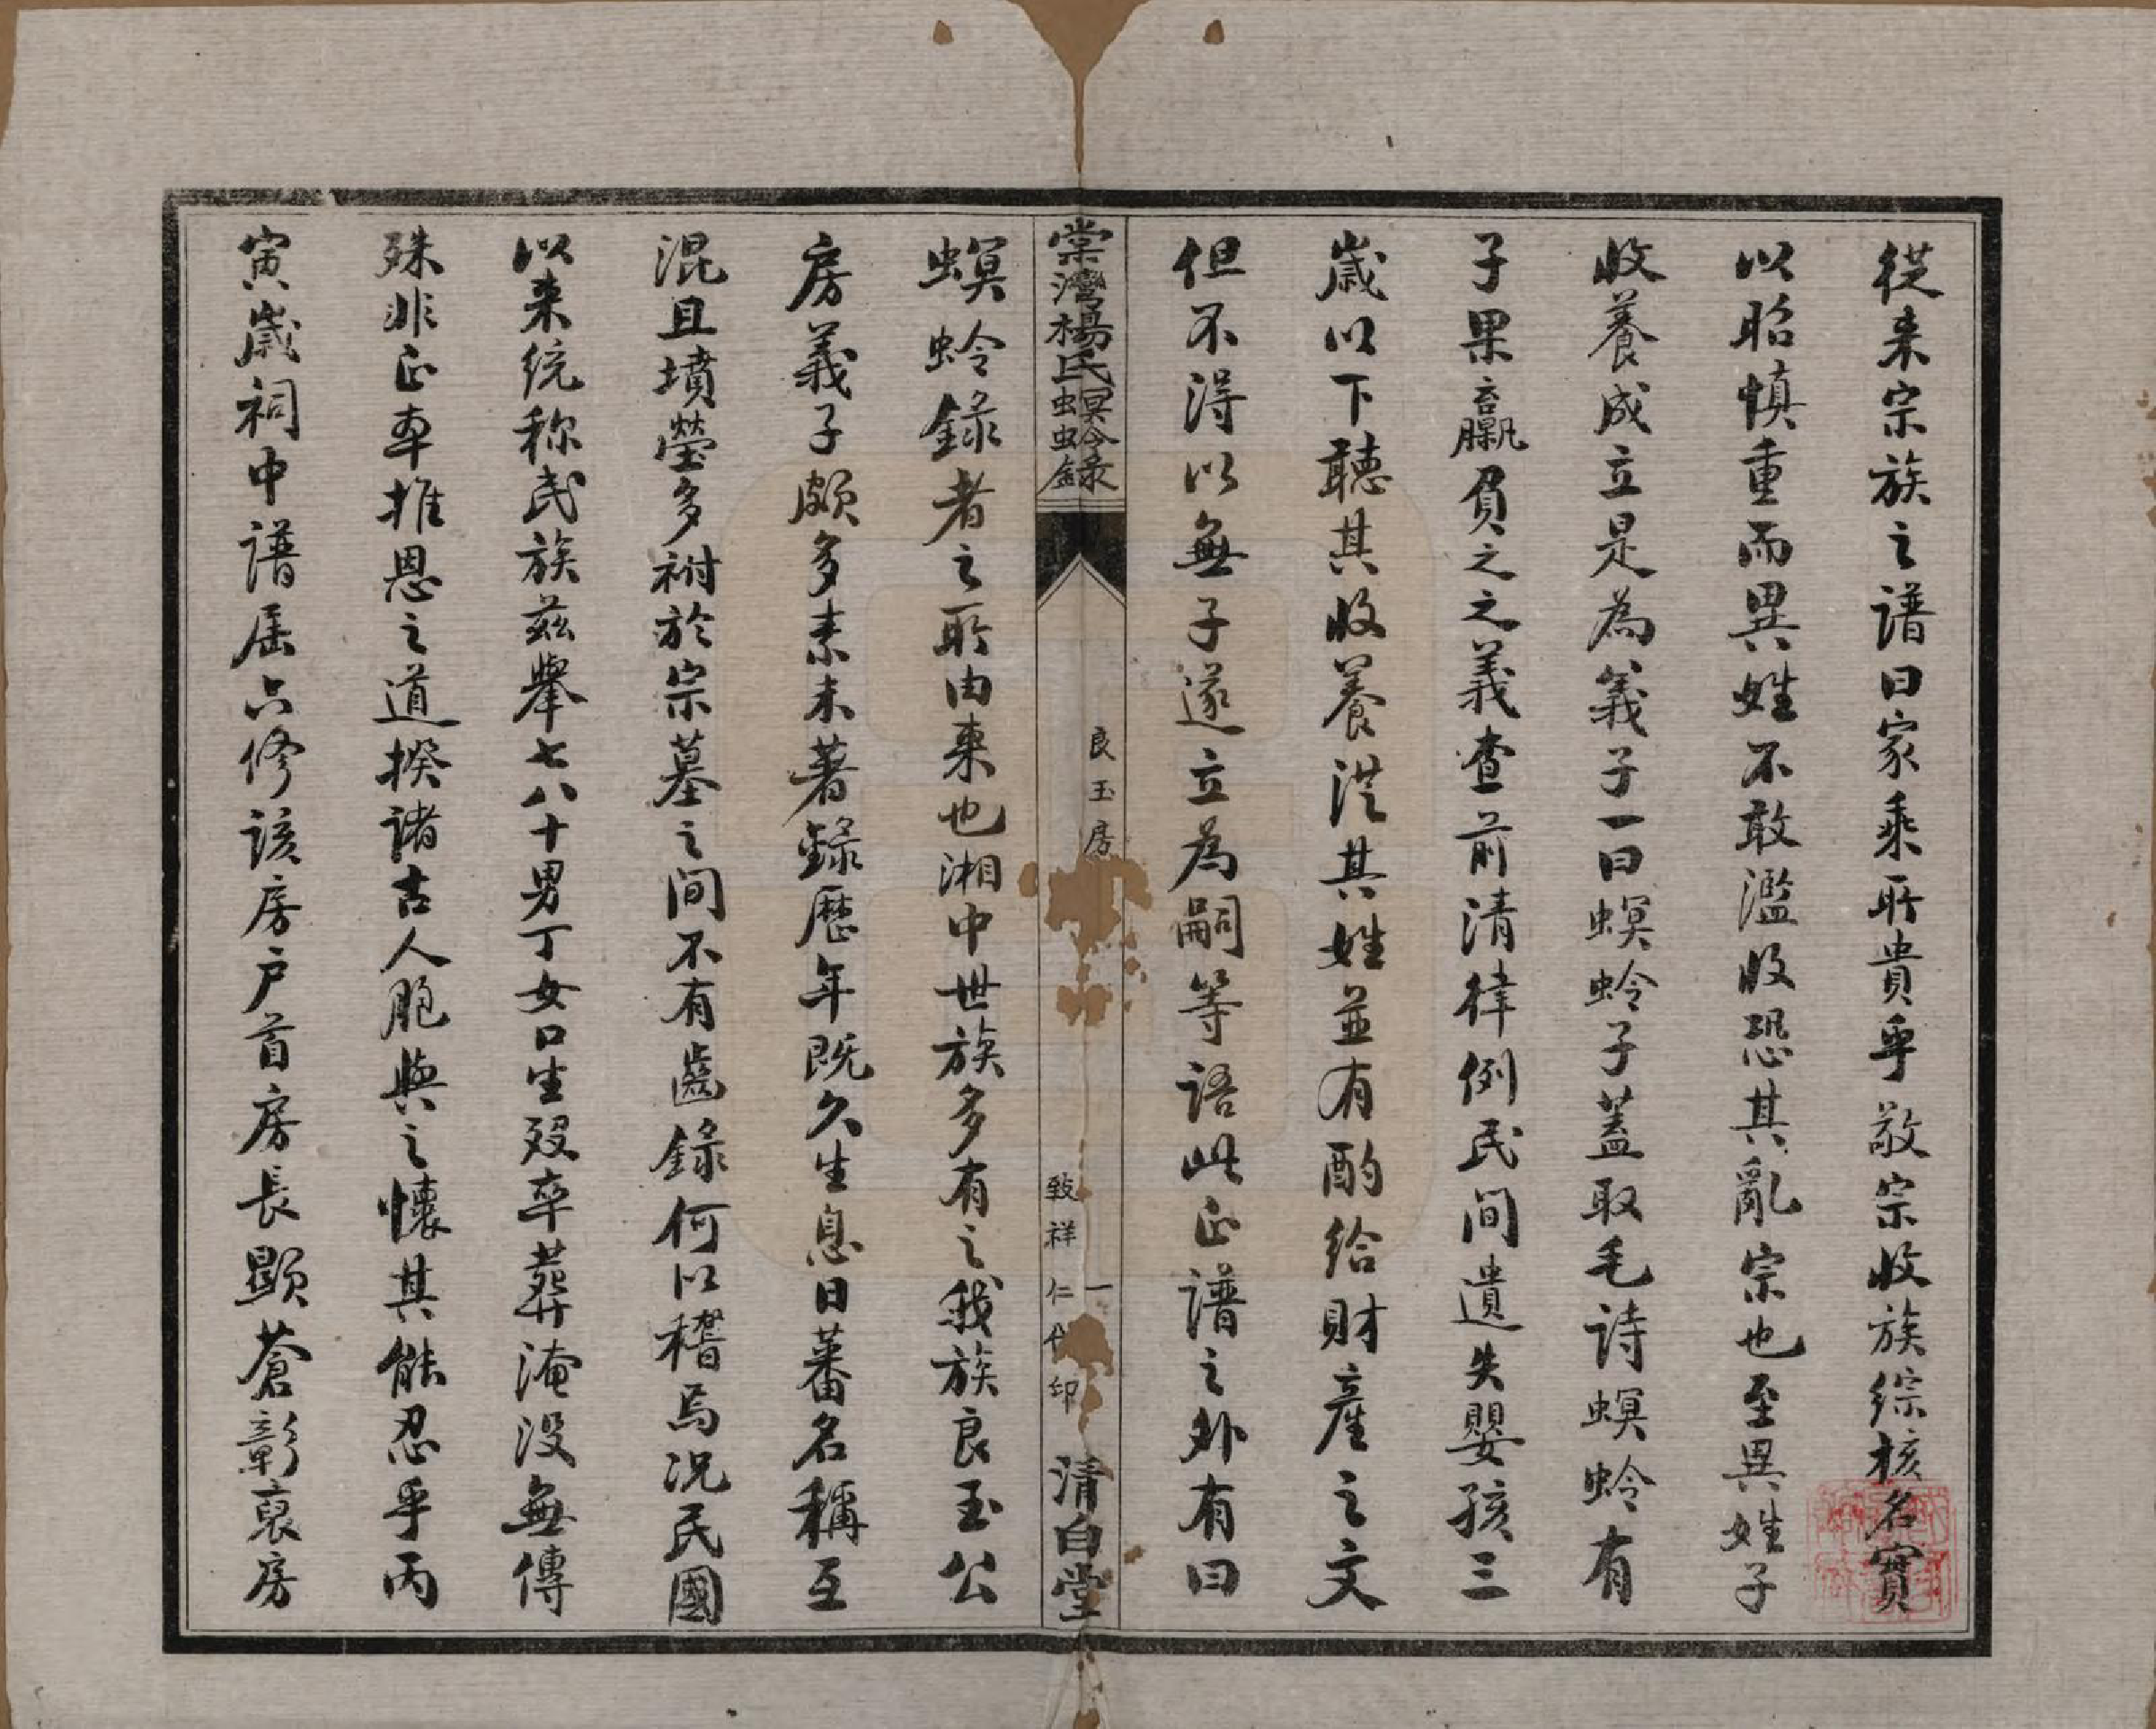 從来宗族之譜曰家乘所貴乎敬宗收族綜核名實
以昭慎重而異姓不敢濫收恐其亂宗也至異姓子
收養成立是為義子一曰螟蛉子蓋取毛诗螟蛉有
子果蠃負之之義查前清律例民间遺失嬰孩三
歲以下聽其收養從其姓並有酌给財產之文
但不得以無子遂立為嗣等語此正譜之外有曰
棠灣楊氏螟蛉錄
良玉房
一
致祥仁代印
清白堂
螟蛉錄者之所由来也湘中世族多有之我族良玉公
房義子頗多素未著錄歷年既久生息日蕃名稱互
混且墳塋多祔於宗墓之间不有齒錄何以稽焉况民國
以来统称民族兹舉七八十男丁女口生殁卒葬淹没無傳
殊非正本推恩之道揆諸古人胞與之懷其能忍乎丙
寅歲祠中譜届六修该房户首房長顯蒼彰裒房